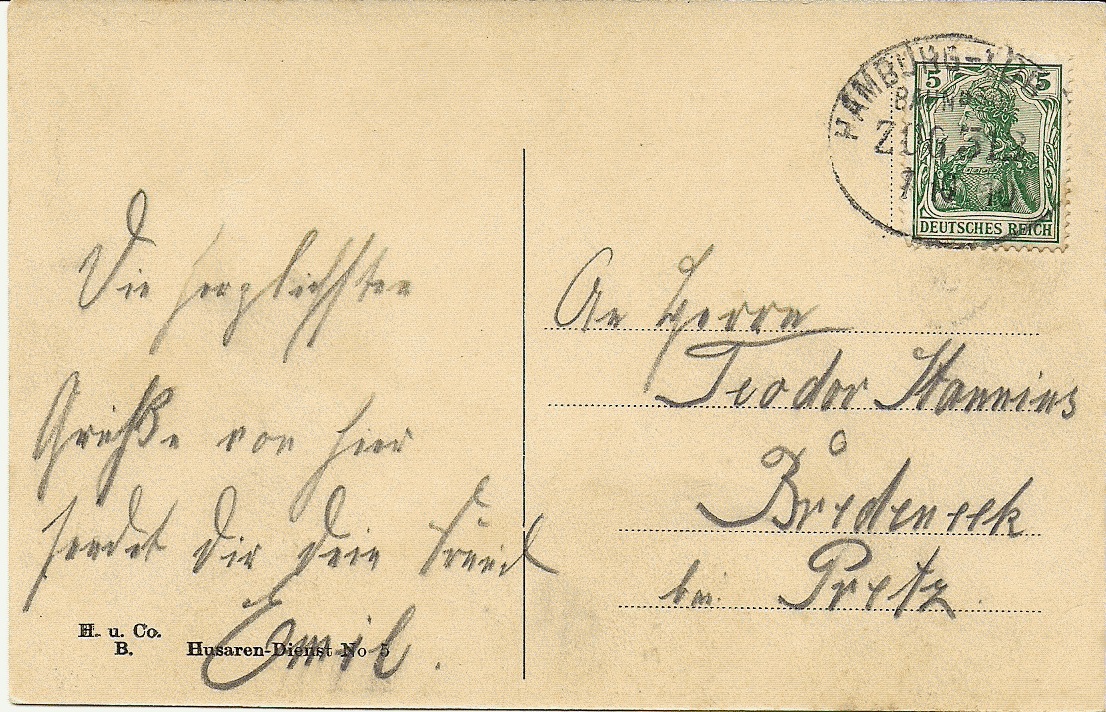 Die herzlichsten
Grüße von hier
sendet Dir Dein Freund
Emil.
H. u. Co.
B.
Husaren-Dienst No 5
HAMBURG-
BAHNPOST
ZUG
5 5
DEUTSCHES REICH
An Herrn
Teodor Hannius
Bredeneek
bei Pretz.